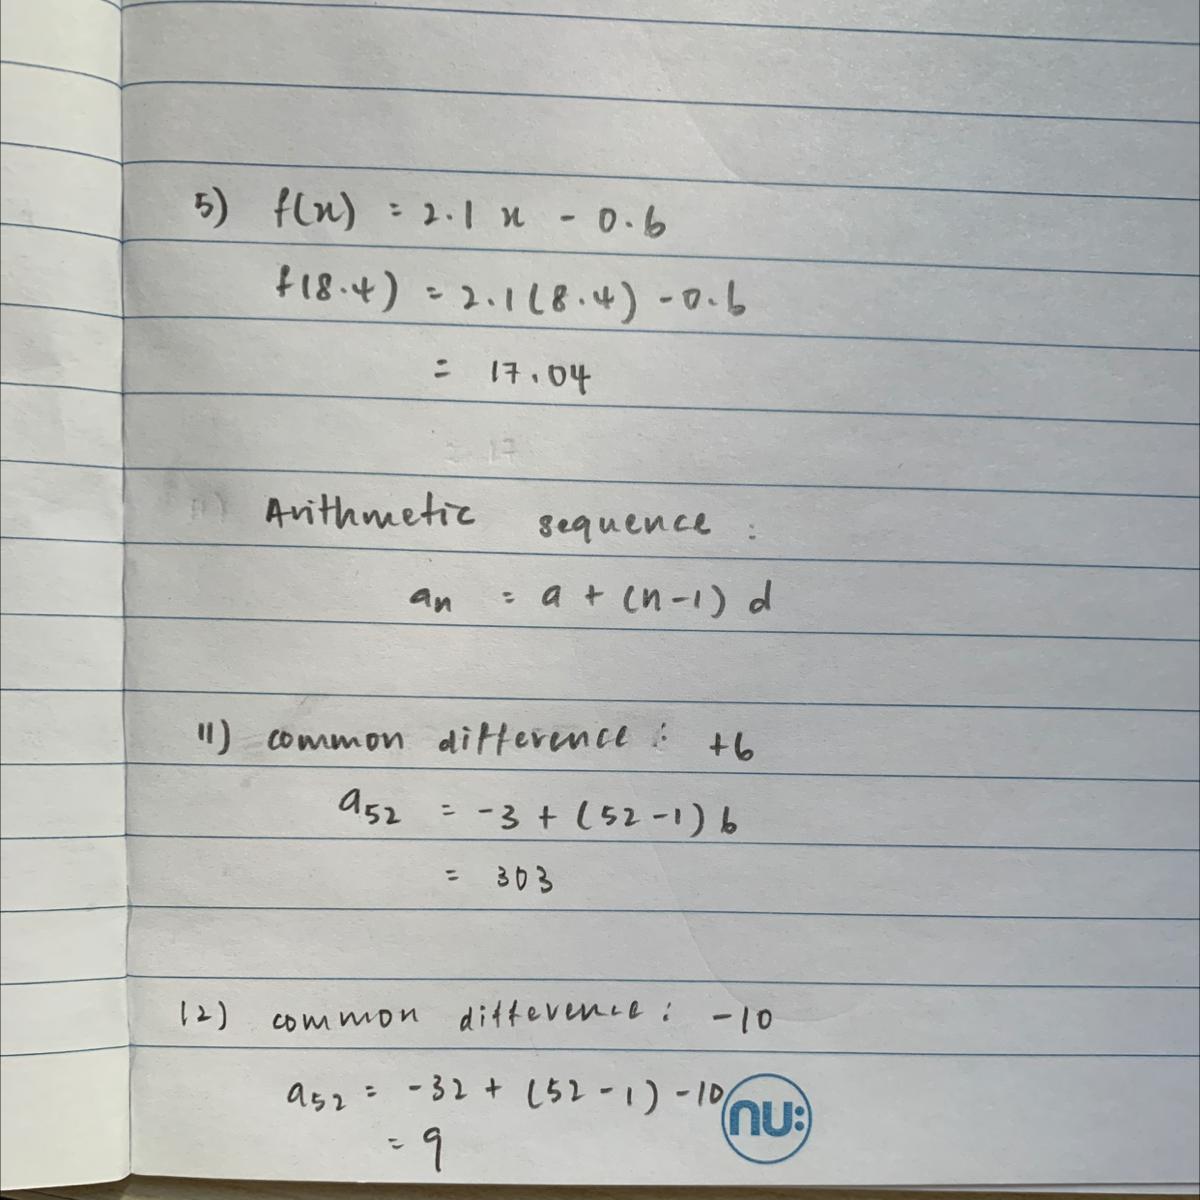 5) f(x) = 2.1 x - 0.6
f(8.4) = 2.1(8.4) - 0.6
= 17.04
= 17
11) Arithmetic sequence :
an = a + (n-1) d
11) common difference : +6
a52 = -3 + (52-1) 6
= 303
12) common difference : -10
a52 = -32 + (52-1) -10
= 9
nu: